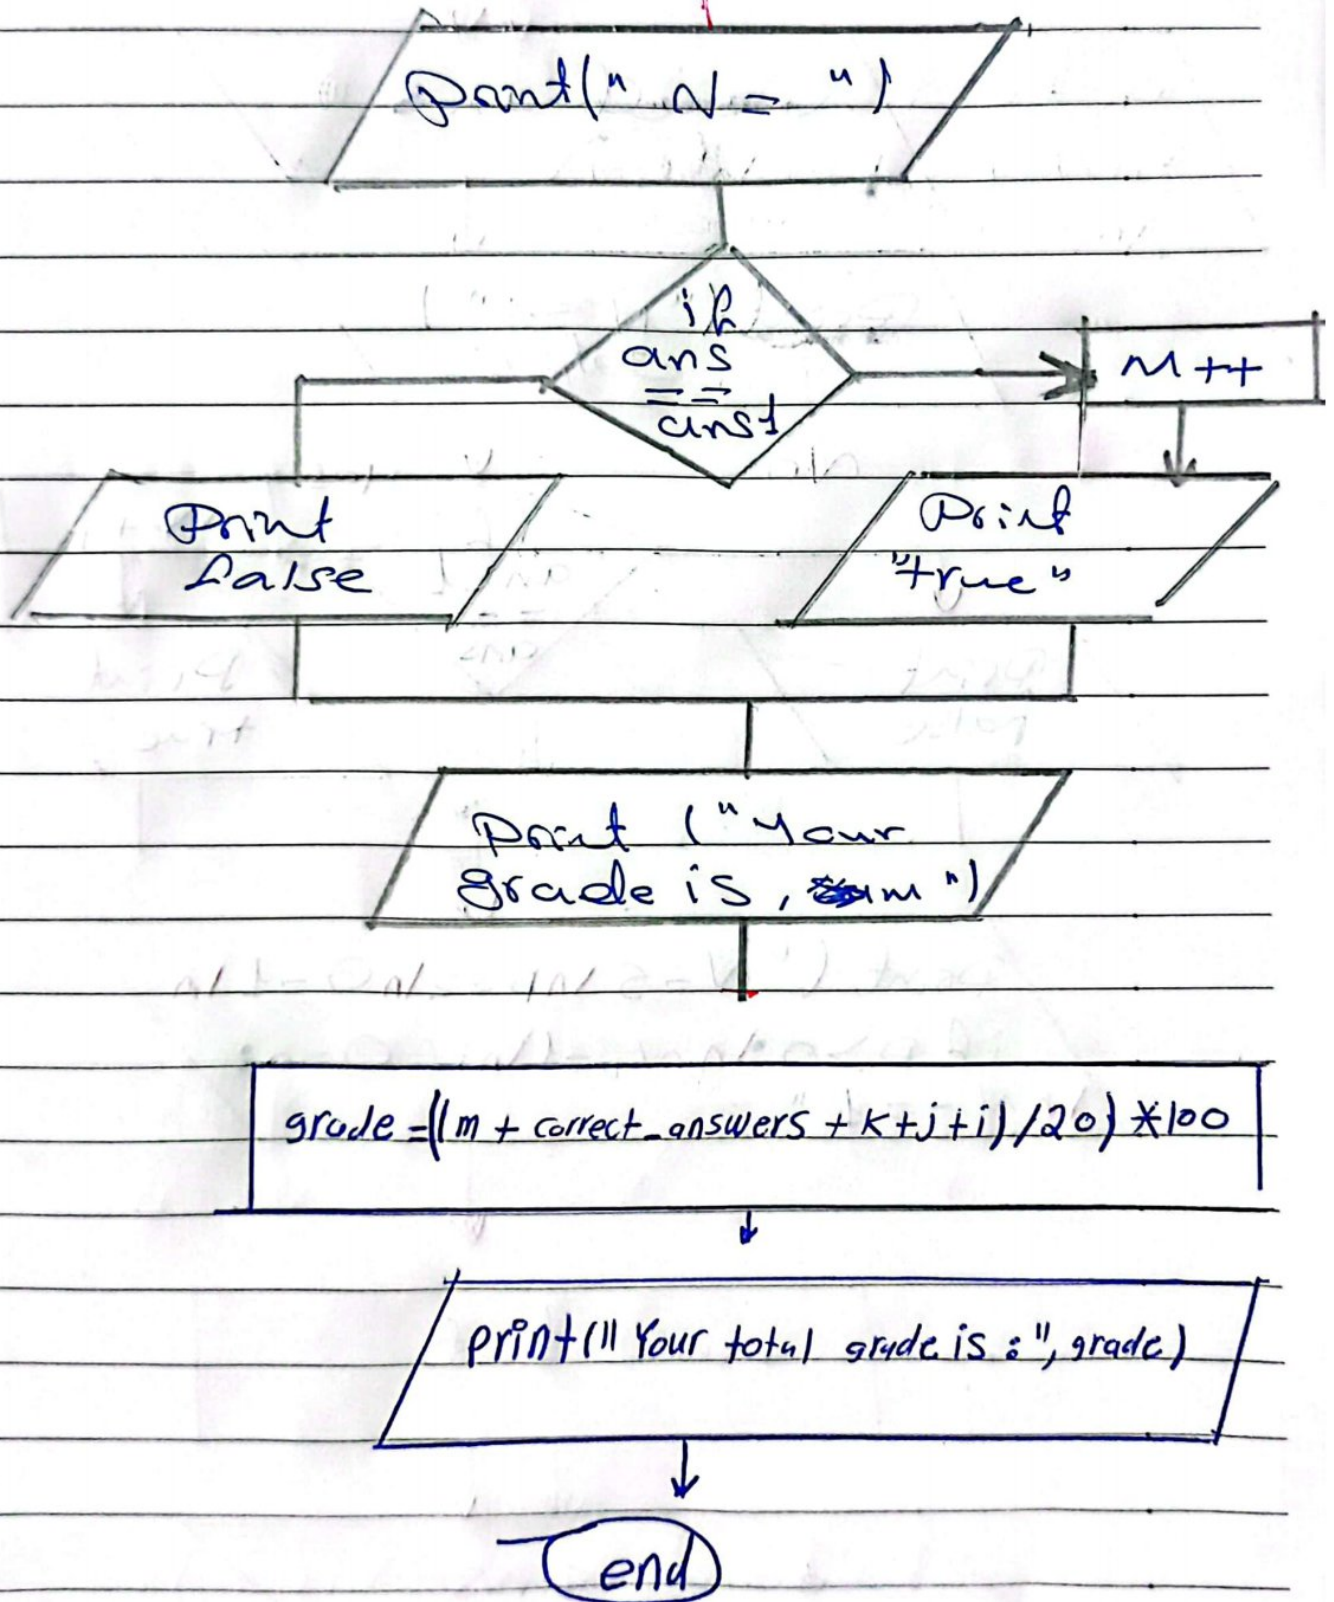 Print(" N = ")
if
ans
==
ans1
M++
Print
false
Print
"true"
Print ("Your
grade is, m")
grade =((m + correct_answers + k+j+i)/20)*100
print("Your total grade is :", grade)
end